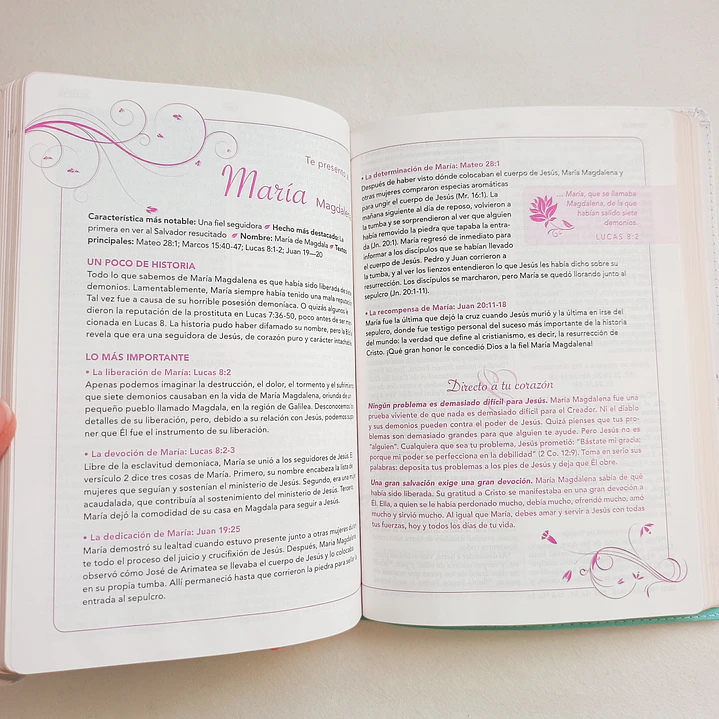 Te presento a
María Magdalena
Característica más notable: Una fiel seguidora Hecho más destacado: La
primera en ver al Salvador resucitado Nombre: María de Magdala Textos
principales: Mateo 28:1; Marcos 15:40-47; Lucas 8:1-2; Juan 19—20
UN POCO DE HISTORIA
Todo lo que sabemos de María Magdalena es que había sido liberada de siete
demonios. Lamentablemente, María siempre había tenido una mala reputación.
Tal vez fue a causa de su horrible posesión demoníaca. O quizás algunos le
dieron la reputación de la prostituta en Lucas 7:36-50, poco antes de ser men-
cionada en Lucas 8. La historia pudo haber difamado su nombre, pero la Biblia
revela que era una seguidora de Jesús, de corazón puro y carácter intachable.
LO MÁS IMPORTANTE
• La liberación de María: Lucas 8:2
Apenas podemos imaginar la destrucción, el dolor, el tormento y el sufrimiento
que siete demonios causaban en la vida de María Magdalena, oriunda de un
pequeño pueblo llamado Magdala, en la región de Galilea. Desconocemos los
detalles de su liberación, pero, debido a su relación con Jesús, podemos supo-
ner que Él fue el instrumento de su liberación.
• La devoción de María: Lucas 8:2-3
Libre de la esclavitud demoníaca, María se unió a los seguidores de Jesús. El
versículo 2 dice tres cosas de María. Primero, su nombre encabeza la lista de
mujeres que seguían y sostenían el ministerio de Jesús. Segundo, era una mujer
acaudalada, que contribuía al sostenimiento del ministerio de Jesús. Tercero,
María dejó la comodidad de su casa en Magdala para seguir a Jesús.
• La dedicación de María: Juan 19:25
María demostró su lealtad cuando estuvo presente junto a otras mujeres duran-
te todo el proceso del juicio y crucifixión de Jesús. Después, María Magdalena
observó cómo José de Arimatea se llevaba el cuerpo de Jesús y lo colocaba
en su propia tumba. Allí permaneció hasta que corrieron la piedra para sellar la
entrada al sepulcro.
• La determinación de María: Mateo 28:1
Después de haber visto dónde colocaban el cuerpo de Jesús, María Magdalena y
otras mujeres compraron especias aromáticas
para ungir el cuerpo de Jesús (Mr. 16:1). La
mañana siguiente al día de reposo, volvieron a
la tumba y se sorprendieron al ver que alguien
había removido la piedra que tapaba la entra-
da (Jn. 20:1). María regresó de inmediato para
informar a los discípulos que se habían llevado
el cuerpo de Jesús. Pedro y Juan corrieron a
la tumba, y al ver los lienzos entendieron lo que Jesús les había dicho sobre su
resurrección. Los discípulos se marcharon, pero María se quedó llorando junto al
sepulcro (Jn. 20:1-11).
... María, que se llamaba
Magdalena, de la que
habían salido siete
demonios.
LUCAS 8:2
• La recompensa de María: Juan 20:11-18
María fue la última que dejó la cruz cuando Jesús murió y la última en irse del
sepulcro, donde fue testigo personal del suceso más importante de la historia
del mundo: la verdad que define al cristianismo, es decir, la resurrección de
Cristo. ¡Qué gran honor le concedió Dios a la fiel María Magdalena!
Directo a tu corazón
Ningún problema es demasiado difícil para Jesús. María Magdalena fue una
prueba viviente de que nada es demasiado difícil para el Creador. Ni el diablo
y sus demonios pueden contra el poder de Jesús. Quizá pienses que tus pro-
blemas son demasiado grandes para que alguien te ayude. Pero Jesús no es
"alguien". Cualquiera que sea tu problema, Jesús prometió: "Bástate mi gracia;
porque mi poder se perfecciona en la debilidad" (2 Co. 12:9). Toma en serio sus
palabras: deposita tus problemas a los pies de Jesús y deja que Él obre.
Una gran salvación exige una gran devoción. María Magdalena sabía de qué
había sido liberada. Su gratitud a Cristo se manifestaba en una gran devoción a
Él. Ella, a quien se le había perdonado mucho, debía mucho, ofrendó mucho, amó
mucho y sirvió mucho. Al igual que María, debes amar y servir a Jesús con todas
tus fuerzas, hoy y todos los días de tu vida.